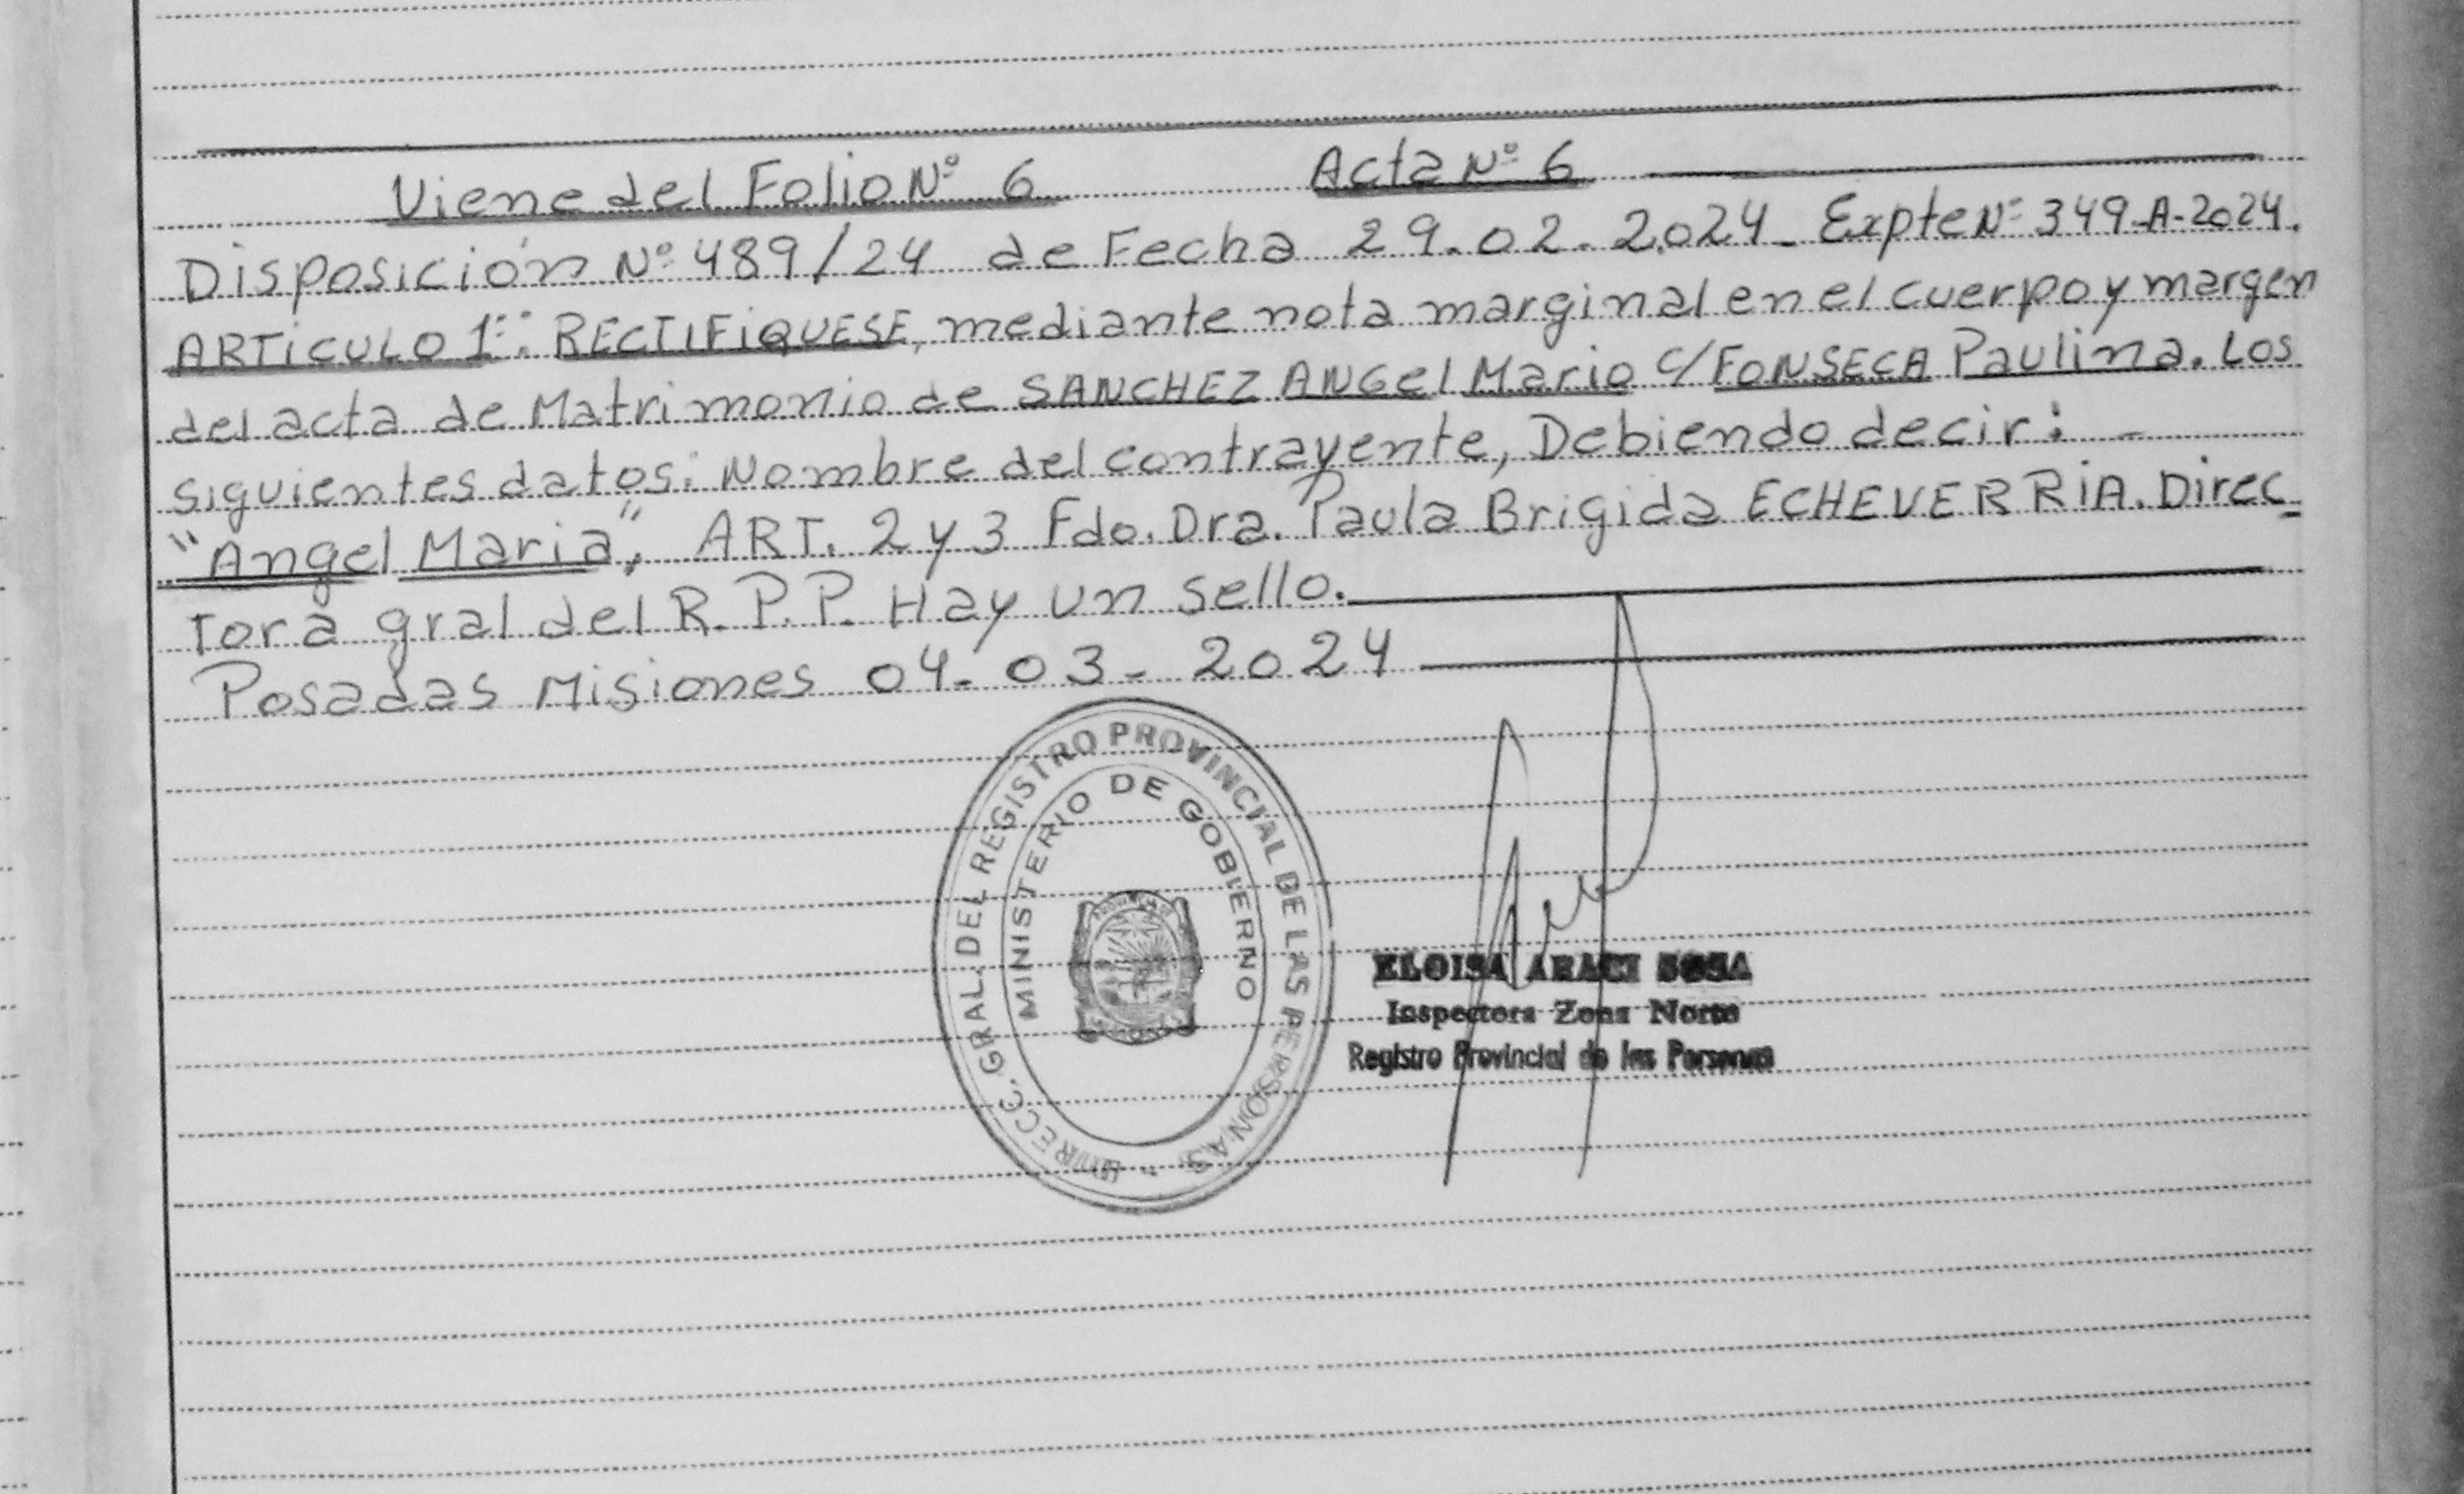 Viene del Folio Nº 6 Acta Nº 6
Disposición Nº 489/24 de Fecha 29.02.2024_ Expte Nº 349-A-2024.
ARTiCULO 1º: RECTIFiQUESE, mediante nota marginal en el cuerpo y margen
del acta de Matrimonio de SANCHEZ ANGel Mario c/ FONSECA Paulina. Los
siguientes datos: Nombre del contrayente, Debiendo decir: -
"Angel Maria", ART. 2 y 3 Fdo. Dra. Paula Brigida ECHEVERRiA. Direc_
tora gral del R.P.P. Hay un sello.
Posadas Misiones 04-03-2024
DIRECC. GRAL. DEL REGISTRO PROVINCIAL DE LAS PERSONAS -
MINISTERIO DE GOBIERNO
ELOISA ARACI SOSA
Inspectora Zona Norte
Registro Provincial de las Personas